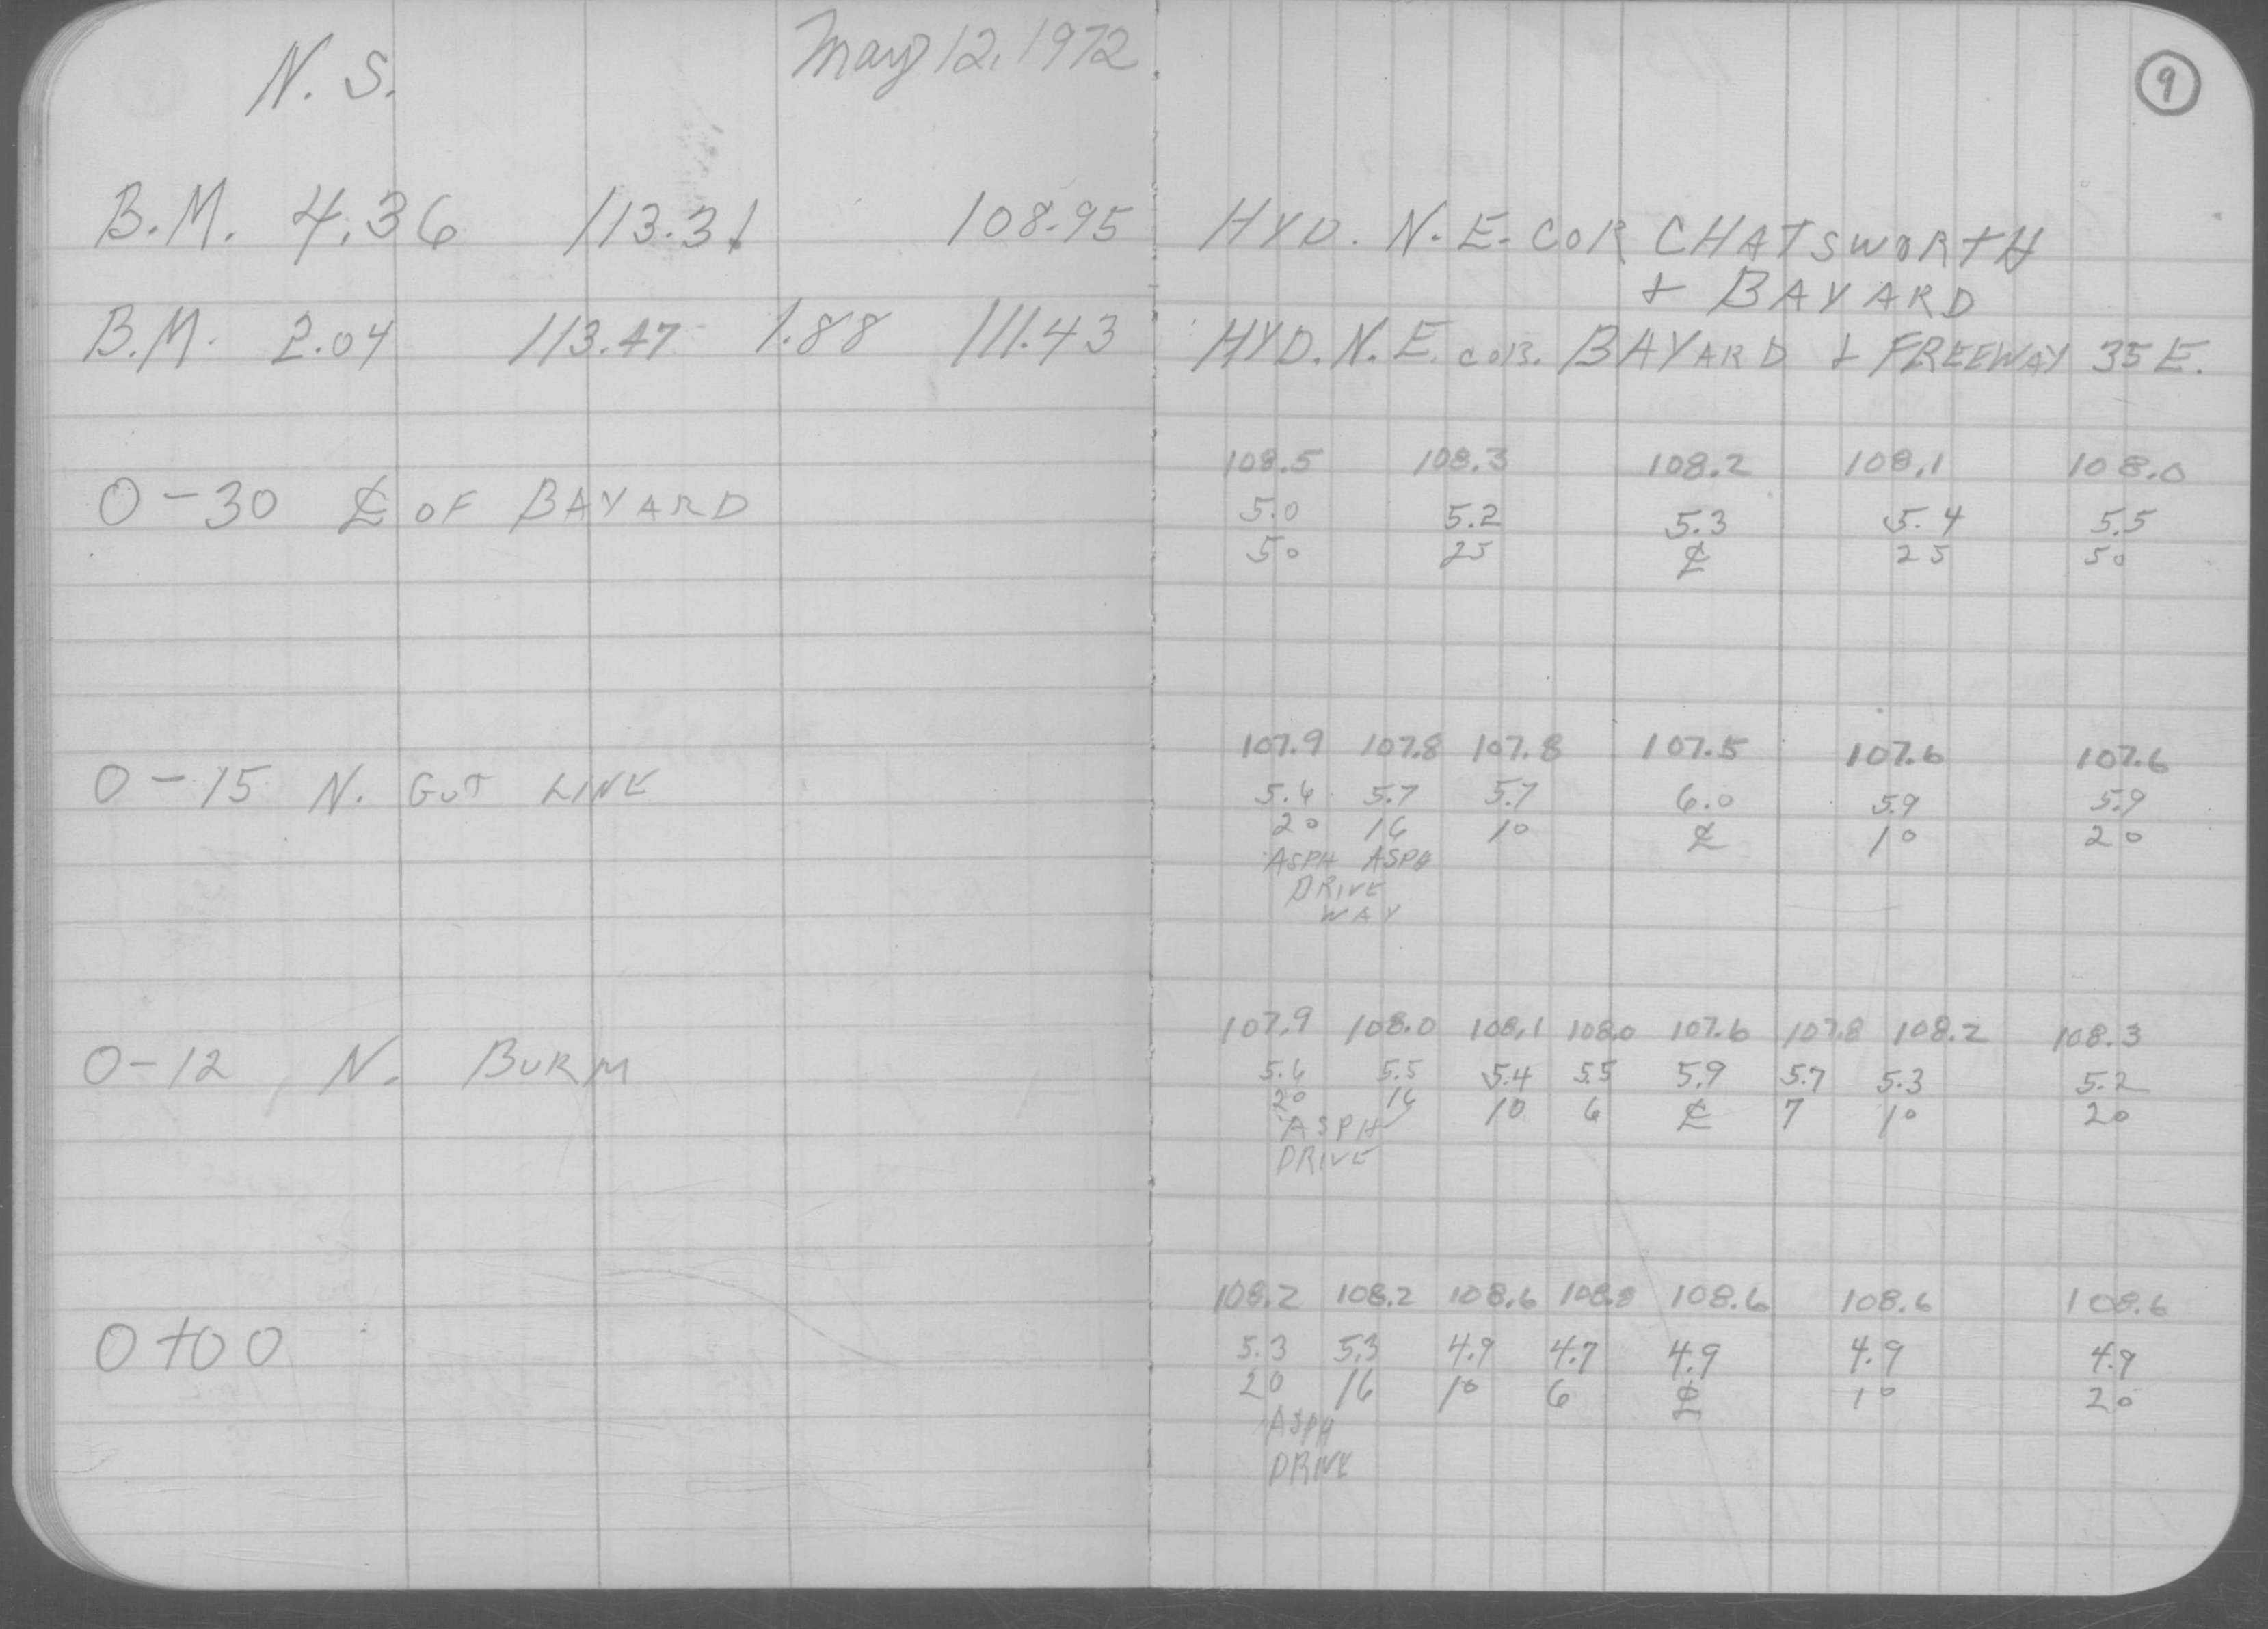 N. S. May 12, 1972
9
B.M. 4.36 113.31 108.95 HYD. N.E. COR CHATSWORTH
+ BAYARD
B.M. 2.04 113.47 1.88 111.43 HYD. N.E. COR. BAYARD + FREEWAY 35E.
108.5 108.3 108.2 108.1 108.0
0-30 ℄ OF BAYARD 5.0 5.2 5.3 5.4 5.5
50 25 ℄ 25 50
107.9 107.8 107.8 107.5 107.6 107.6
0-15 N. GUT LINE 5.6 5.7 5.7 6.0 5.9 5.9
20 16 10 ℄ 10 20
ASPH ASPH
DRIVE
WAY
107.9 108.0 108.1 108.0 107.6 107.8 108.2 108.3
0-12 N. BURM 5.6 5.5 5.4 5.5 5.9 5.7 5.3 5.2
20 16 10 6 ℄ 7 10 20
ASPH
DRIVE
108.2 108.2 108.6 108.8 108.6 108.6 108.6
0+00 5.3 5.3 4.9 4.7 4.9 4.9 4.9
20 16 10 6 ℄ 10 20
ASPH
DRIVE